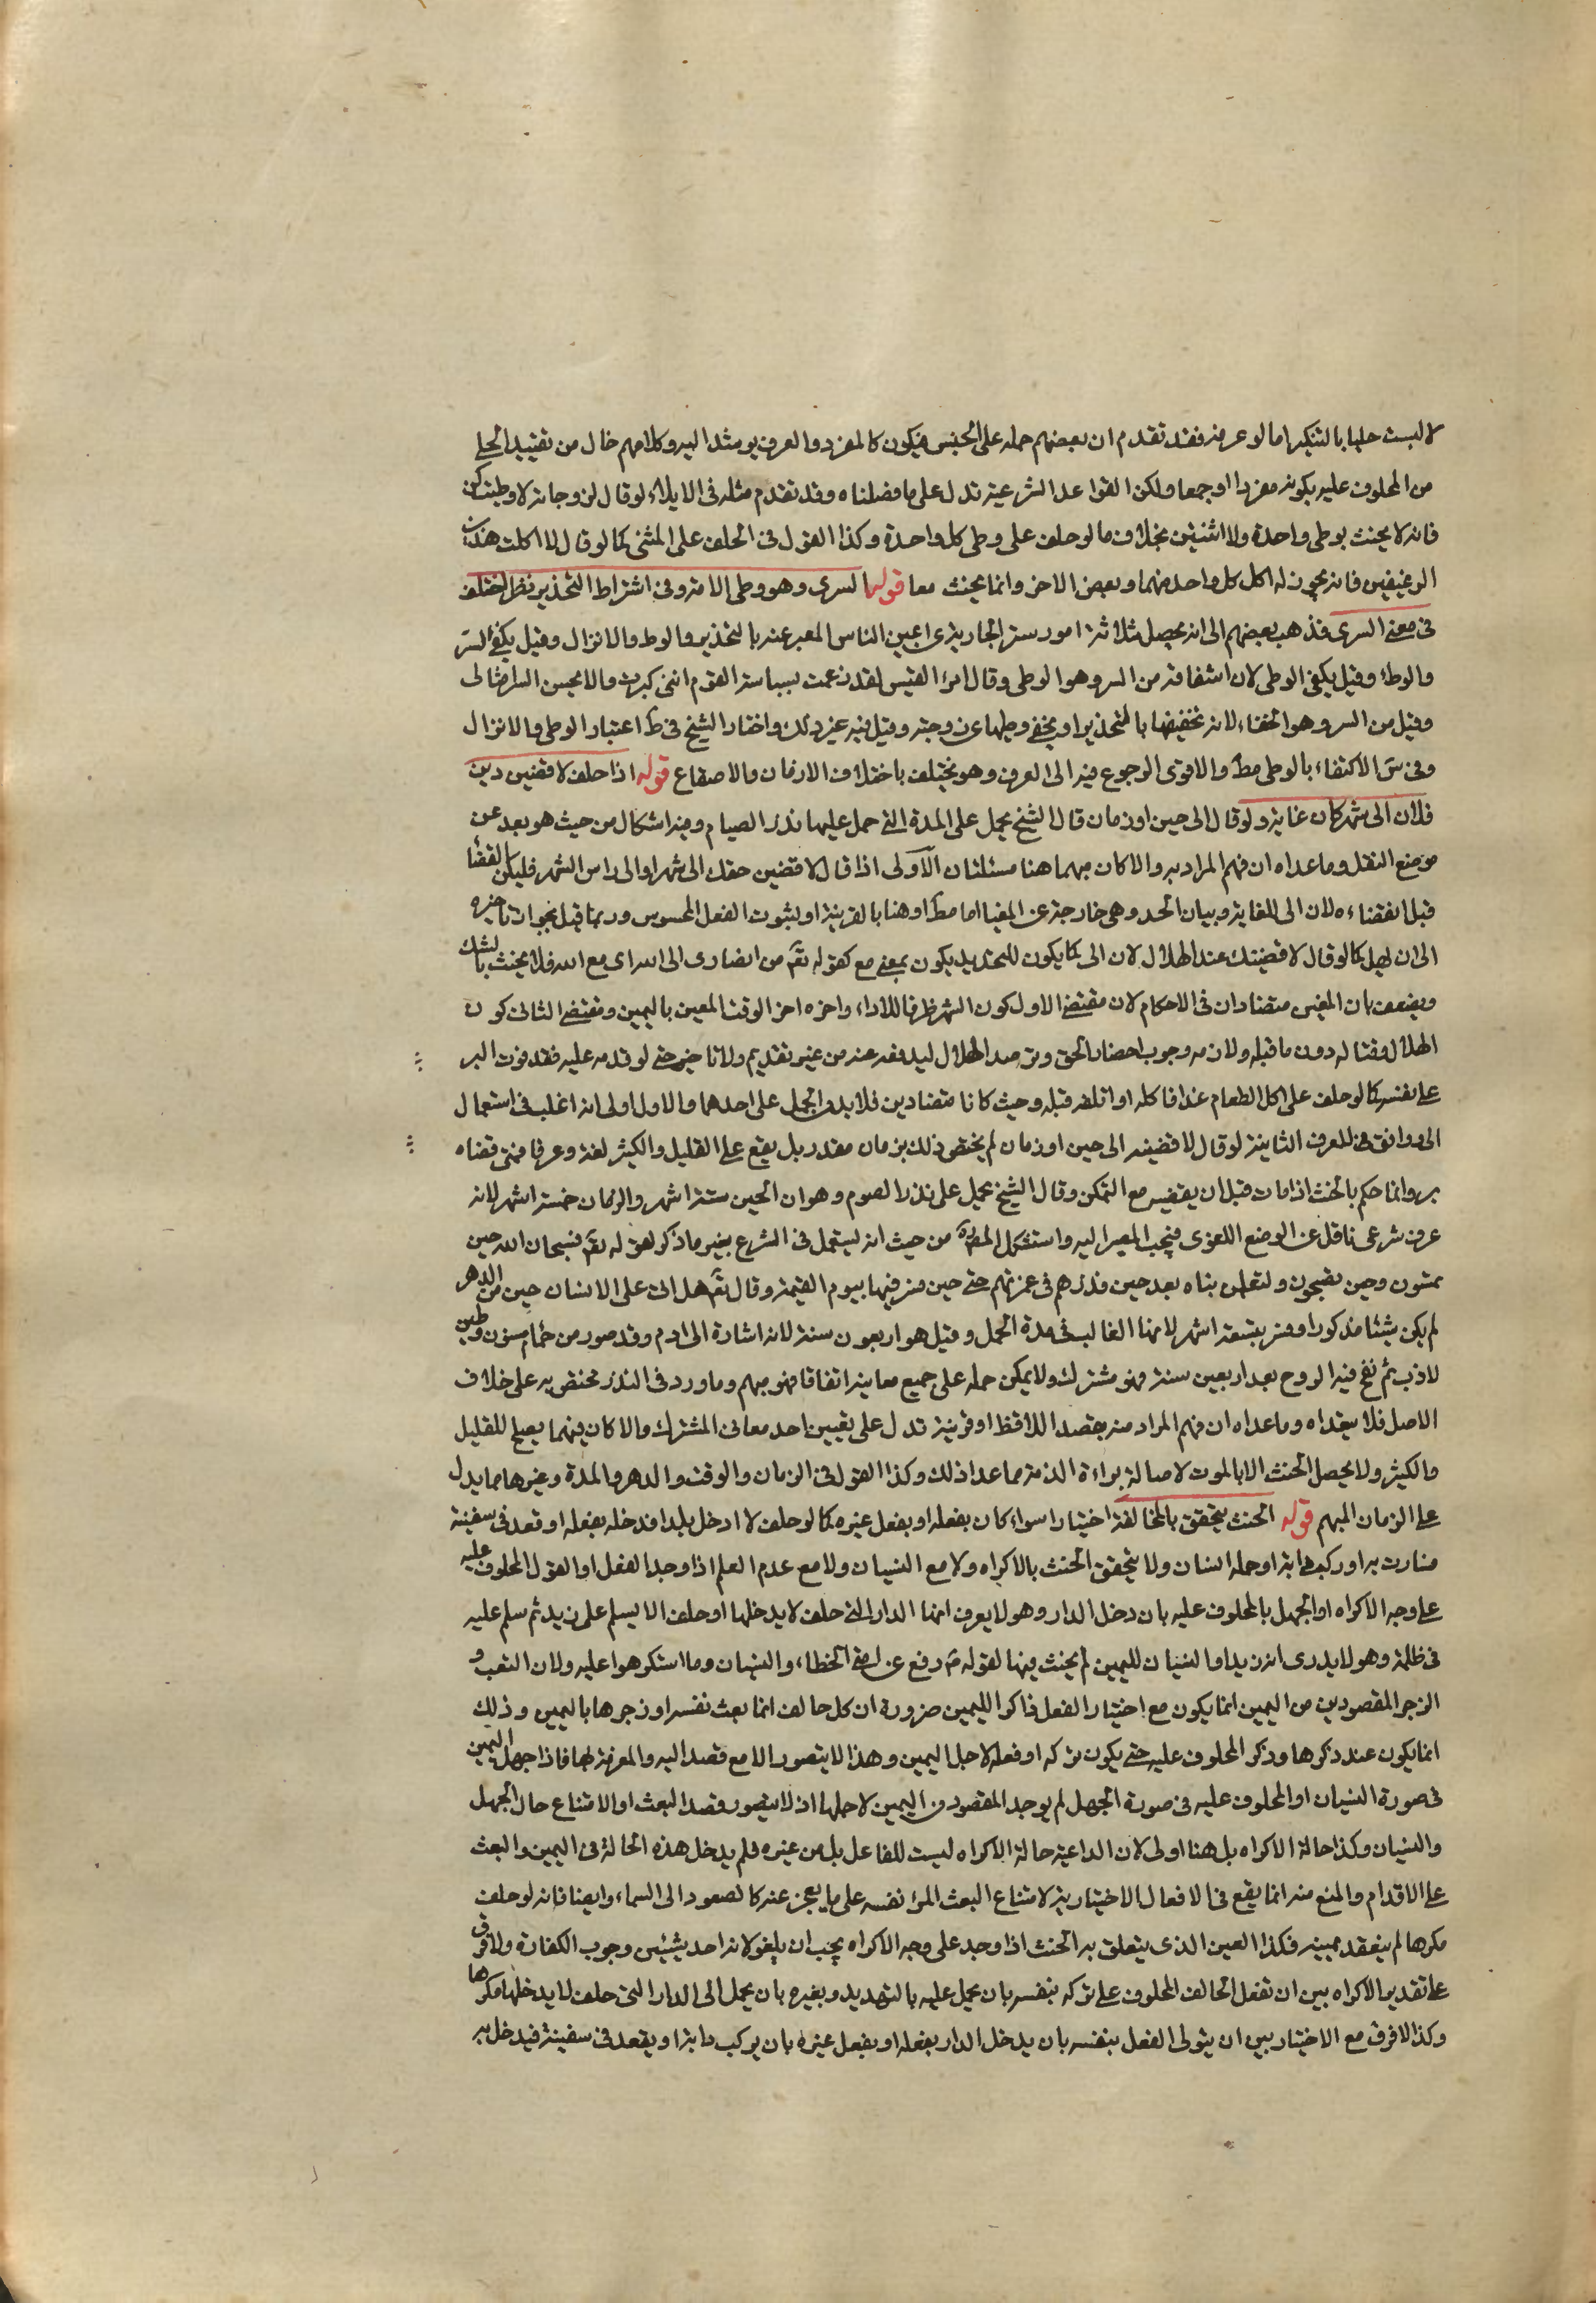 لا لبست حليا بالتنكير اما لو عرفه فقد تقدم ان بعضهم حمله على الجنس فيكون كالمفرد والعرف يومئذ اليه وكلامهم خال من تقييد الحلى
من المحلوف عليه بكونه مفردا او جمعا ولكن القواعد الشرعية تدل على ما فصلناه وقد تقدم مثله فى الايلاء لو قال لزوجاته لا وطئتكن
فانه لا يحنث بوطى واحدة ولا اثنتين بخلاف ما لو حلف على وطى كل واحدة وكذا القول فى الحلف على المثنى كما لو قال لا اكلت هذين
الرغيفين فانه يجوز له اكل كل واحد منهما وبعض الاخر وانما يحنث معا قوله التسرى وهو وطى الامة وفى اشتراط التخدير نظر اختلف
فى معنى التسرى فذهب بعضهم الى انه يحصل بثلاثة امور ستر الجارية عن اعين الناس المعبر عنه بالتخدير والوط والانزال وقيل يكفى الستر
والوطء وقيل يكفى الوطى لان اشتقاقه من السر وهو الوطى وقال امرء القيس لقد زعمت بسباسة القوم اننى كبرت والا يحسن السر امثالى
وقيل من السر وهو الخفاء لانه يخفيها بالتخدير او يخفى وطيها عن زوجته وقيل فيه غير ذلك واختار الشيخ فى ط اعتبار الوطى والانزال
وفى ف الاكتفاء بالوطى مط والاقوى الرجوع فيه الى العرف وهو يختلف باختلاف الازمان والاصقاع قوله اذا حلف لاقضين دين
فلان الى شهر كان غاية ولو قال الى حين او زمان قال الشيخ يحمل على المدة التى حمل عليها نذر الصيام وفيه اشكال من حيث هو بعد عن
موضع النقل وما عداه ان فهم المراد به والا كان مبهما هنا مسئلتان الاولى اذا قال لاقضين حقك الى شهر او الى راس الشهر فليكن القضا
قبل انقضاءه لان الى للغاية وبيان الحد وهى خارجة عن المغيا اما مط او هنا بالقرينة او لثبوت الفعل المحسوس وربما قيل بجواز تاخيره
الى ان يهل كما لو قال لاقضينك عند الهلال لان الى كما يكون للتحديد يكون بمعنى مع كقوله تع من انصارى الى الله اى مع الله فلا يحنث بالشك
ويضعف بان المعنيين متضادان فى الاحكام لان مقتضى الاول كون الشهر ظرفا للاداء واخره اخر الوقت المعين باليمين ومقتضى الثانى كون
الهلال وقتا له دون ما قبله ولازمه وجوب احضار الحق وترصد الهلال ليدفعه عنده من غير تقديم ولا تاخير حتى لو قدمه عليه فقد فوت البر
على نفسه كما لو حلف على اكل الطعام غدا فاكله او اتلفه قبله وحيث كانا متضادين فلا بد من الحمل على احدهما والاول اولى لانه اغلب فى استعمال
الى واوفق للعرف الثانية لو قال لاقضينه الى حين او زمان لم يختص ذلك بزمان مقدر بل يقع على القليل والكثير لغة وعرفا فمتى قضاه
بر وانما حكم بالحنث اذا مات قبل ان يقضيه مع التمكن وقال الشيخ يحمل على نذر الصوم وهو ان الحين ستة اشهر والزمان خمسة اشهر لانه
عرف شرعى ناقل عن الوضع اللغوى فيجب المصير اليه واستشكل المص من حيث انه يستعمل فى الشرع بغير ما ذكر لقوله تع فسبحان الله حين
تمسون وحين تصبحون ولتعلمن نباه بعد حين فذرهم فى غمرتهم حتى حين فسر فيها بيوم القيمة وقال تع هل اتى على الانسان حين من الدهر
لم يكن شيئا مذكورا وفسر بتسعة اشهر لانها الغالب فى مدة الحمل وقيل هو اربعون سنة لانه اشارة الى ادم وقد صور من حماء مسنون وطين
لازب ثم نفخ فيه الروح بعد اربعين سنة فهو مشترك ولا يمكن حمله على جميع معانيه اتفاقا فهو مبهم وما ورد فى النذر مختص به على خلاف
الاصل فلا يتعداه وما عداه ان فهم المراد منه بقصد اللافظ او قرينة تدل على تعيين احد معانى المشترك والا كان فيهما يصلح للقليل
والكثير ولا يحصل الحنث الا بالموت لاصالة براءة الذمة مما عدا ذلك وكذا القول فى الزمان والوقت والدهر والمدة وغيرها مما يدل
على الزمان المبهم قوله الحنث يتحقق بالمخالفة اختيارا سواء كان بفعله او بفعل غيره كما لو حلف لا ادخل بلدا فدخله بفعله او قعد فى سفينة
فسارت به او ركب دابة او حمله انسان ولا يتحقق الحنث بالاكراه ولا مع النسيان ولا مع عدم العلم اذا وجد الفعل او القول المحلوف عليه
على وجه الاكراه او الجهل بالمحلوف عليه بان دخل الدار وهو لا يعرف انها الدار التى حلف لا يدخلها او حلف الا يسلم على زيد ثم سلم عليه
فى ظلمة وهو لا يدرى انه زيد او النسيان لليمين لم يحنث فيها لقوله ص رفع عن امتى الخطاء والنسيان وما استكرهوا عليه ولان البعث و
الزجر المقصودين من اليمين انما يكون مع اختيار الفعل ذاكرا لليمين ضرورة ان كل حالف انما بعث نفسه او زجرها باليمين وذلك
انما يكون عند ذكرها وذكر المحلوف عليه حتى يكون تركه او فعله لاجل اليمين وهذا لا يتصور الا مع قصد اليه والمعرفة بها فاذا جهل اليمين
فى صورة النسيان او المحلوف عليه فى صورة الجهل لم يوجد المقصود من اليمين لاجلها اذ لا يتصور قصد البعث او الامتناع حال الجهل
والنسيان وكذا حالة الاكراه بل هنا اولى لان الداعية حالة الاكراه ليست للفاعل بل من غيره فلم يدخل هذه الحالة فى اليمين والبعث
على الاقدام والمنع منه انما يقع فى الافعال الاختيارية لامتناع البعث المرء نفسه على ما يعجز عنه كالصعود الى السماء وايضا فانه لو حلف
مكرها لم ينعقد يمينه فكذا العين الذى يتعلق به الحنث اذا وجد على وجه الاكراه يجب ان يلغو لانه احد شيئين وجوب الكفارة ولا فرق
على تقدير الاكراه بين ان تفعل الحالف المحلوف على تركه بنفسه بان يحمل عليه بالتهديد وبغيره بان يحمل الى الدار التى حلف لا يدخلها مكرها
وكذا لا فرق مع الاختيار بين ان يتولى الفعل بنفسه بان يدخل الدار بفعله او بفعل غيره بان يركب دابة او يقعد فى سفينة فيدخل به